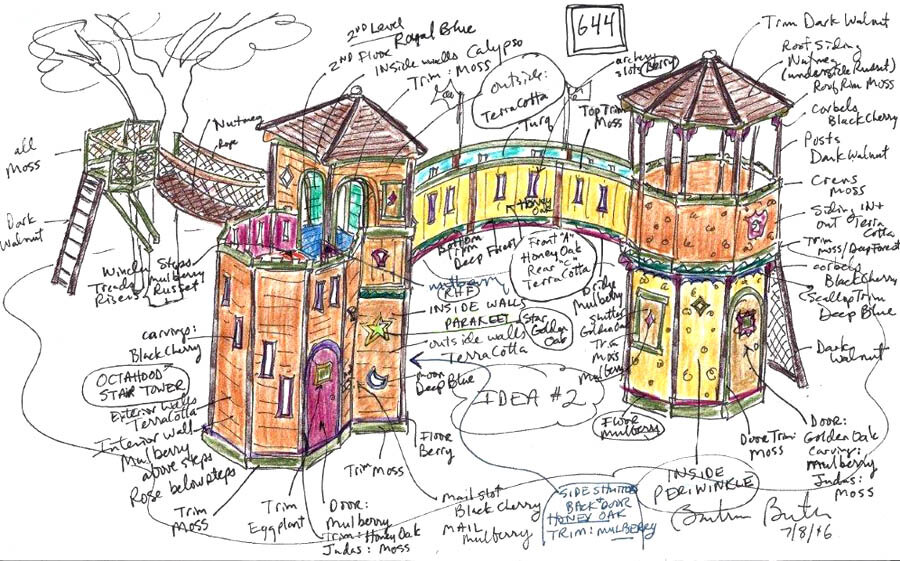 644
2ND Level
2ND Floor Royal Blue
INside walls Calypso
Trim: Moss
outside:
Terracotta
archery
slots (Berry)
Turq
Top Trim
Moss
Trim Dark Walnut
Roof, Siding
Nutmeg
(underside Russet)
Roof Rim Moss
corbels
Black Cherry
Posts
Dark Walnut
Crens
moss
Siding IN+
out Terra
Cotta
Trim
moss/Deep Forest
corbels
Black Cherry
Scallop Trim
Deep Blue
Dark
Walnut
all
Moss
Dark
Walnut
Nutmeg
Rope
Steps
Mulberry
Risers Russet
Honey
Oak
Bottom
Trim
Deep Forest
Front "A"
Honey Oak
Rear "C"
Terra Cotta
(RHF)
INSIDE WALLS
PARAKEET
outside walls
TerraCotta
Star
Golden
Oak
moon
Deep Blue
Bridge
Mulberry
Shutter
Golden Oak
Trim
Moss
Mulberry
IDEA #2
carvings:
Black Cherry
OCTAHOOD
STAIR TOWER
Exterior Walls
Terra Cotta
Interior wall
Mulberry
above steps
Rose below steps
Trim
Moss
Trim
Eggplant
Door:
Mulberry
Trim: Honey Oak
Judas: Moss
Trim Moss
Floor
Berry
Mail slot
Black Cherry
MAIL
Mulberry
Floor
Mulberry
SIDE SHUTTERS
BACK DOOR
HONEY OAK
TRIM: MULBERRY
INSIDE
PERIWINKLE
Door Trim
Moss
Door:
Golden Oak
Carving:
Mulberry
Judas:
Moss
7/8/16